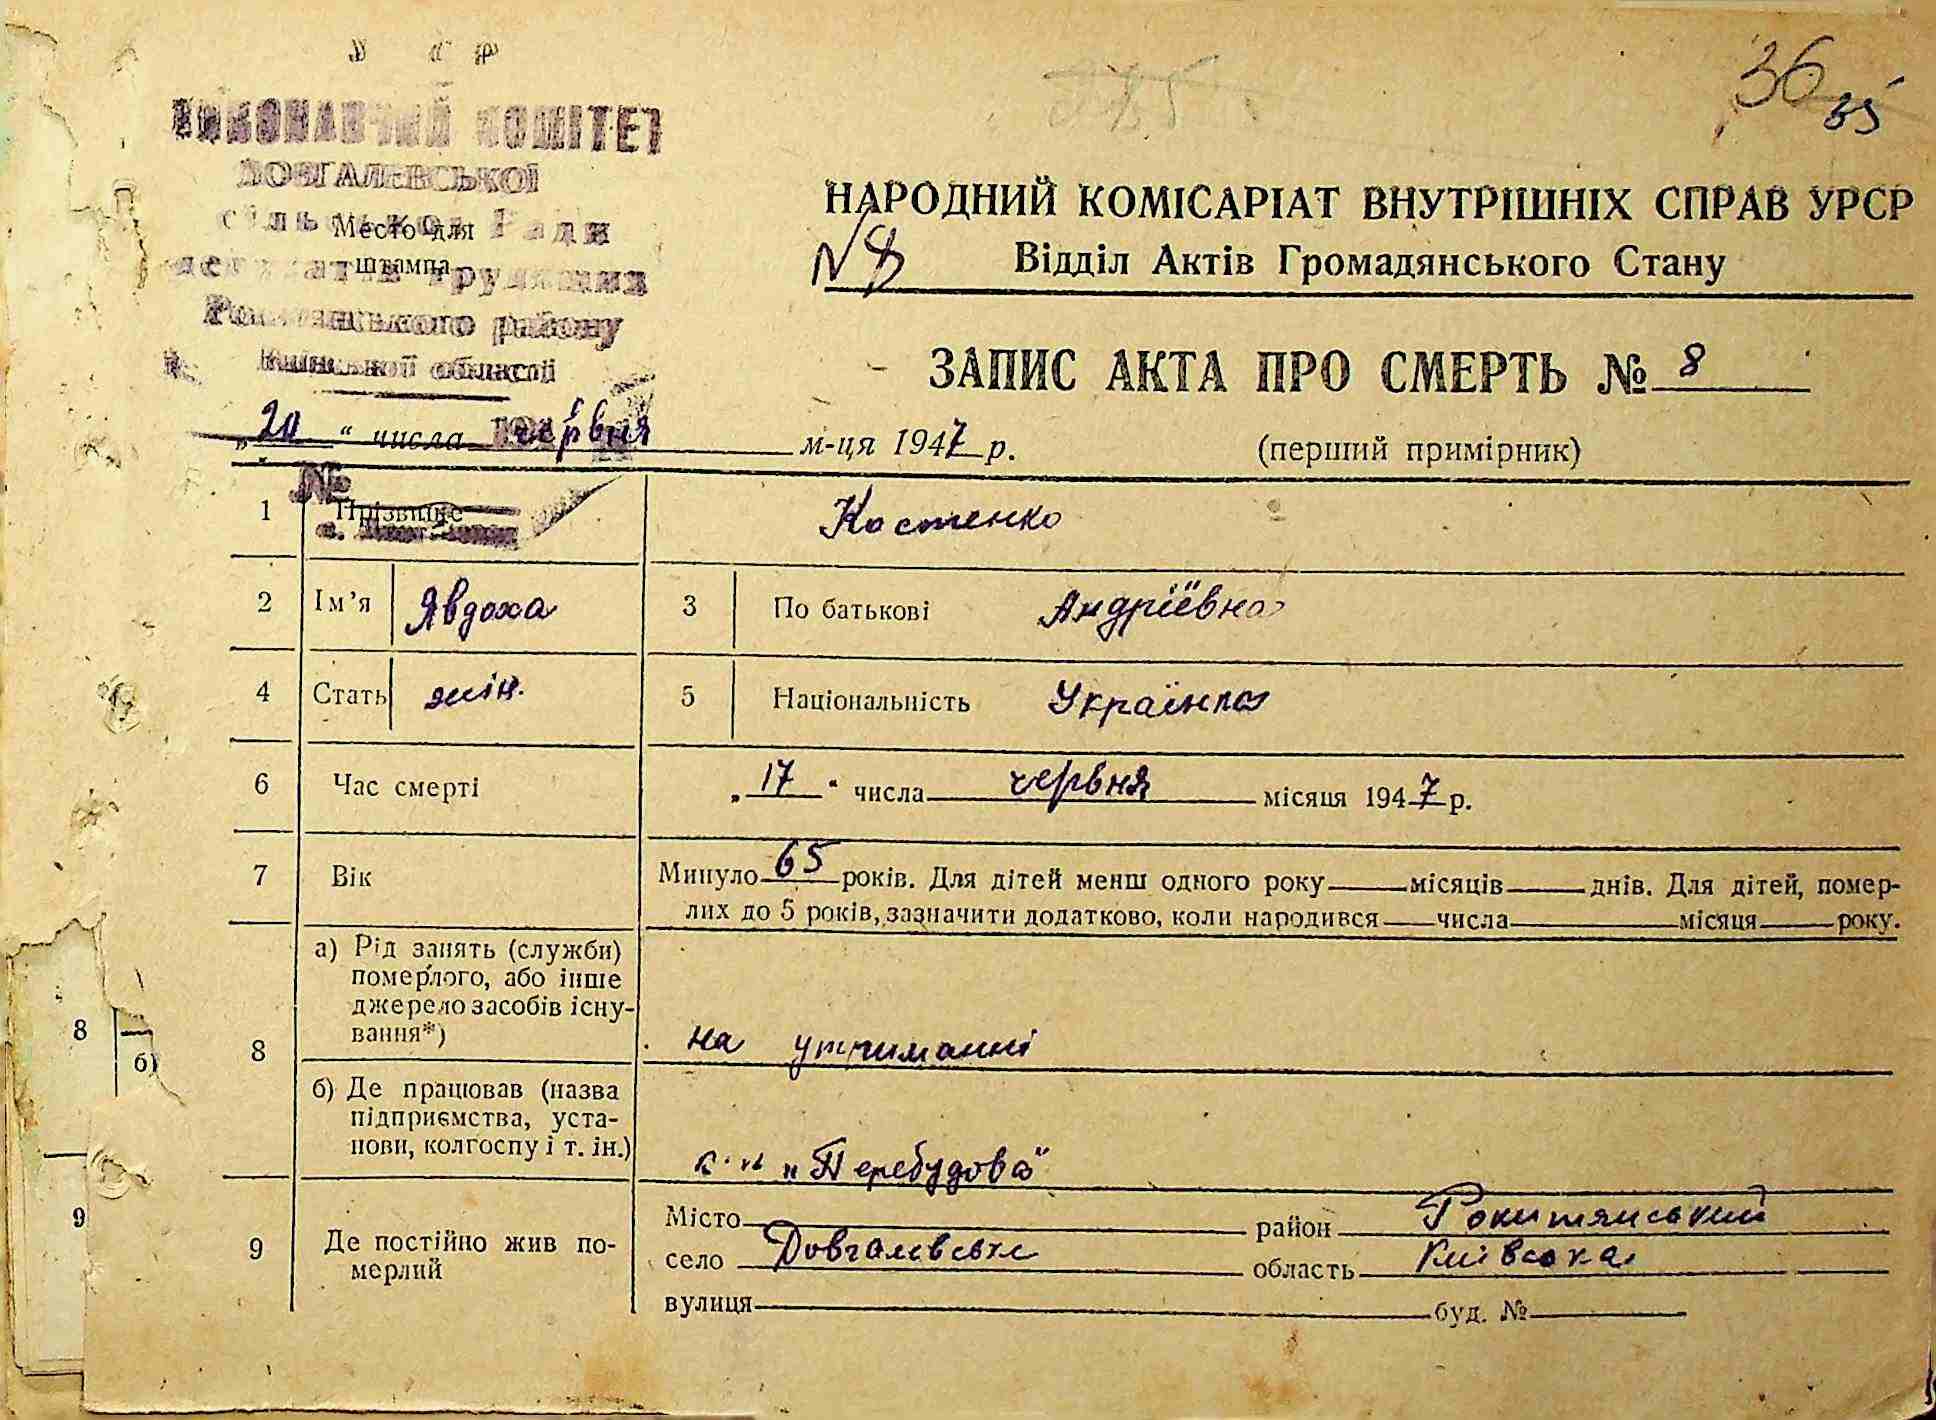 У С Р
ВИКОНАВЧИЙ КОМІТЕТ
ДОВГАЛЕВСЬКОЇ
сільської Ради
депутатів трудящих
Рокитянського району
Київської області
Место для
штампа
36
35
НАРОДНИЙ КОМІСАРІАТ ВНУТРІШНІХ СПРАВ УРСР
N 8
Відділ Актів Громадянського Стану
ЗАПИС АКТА ПРО СМЕРТЬ № 8
„20“ числа червня м-ця 1947 р. (перший примірник)
№
1 Прізвище Костенко
2 Ім’я Явдоха 3 По батькові Андріївна
4 Стать жін. 5 Національність Українка
6 Час смерті „17“ числа червня місяця 1947 р.
7 Вік Минуло 65 років. Для дітей менш одного року місяців днів. Для дітей, помер-
лих до 5 років, зазначити додатково, коли народився числа місяця року.
8 а) Рід занять (служби)
померлого, або інше
джерело засобів існу-
вання*) на утриманні
б) Де працював (назва
підприємства, уста-
нови, колгоспу і т. ін.) „Перебудова“
9 Де постійно жив по-
мерлий
Місто район Рокитянський
село Довгалевське область Київська
вулиця буд. №
8
б)
9